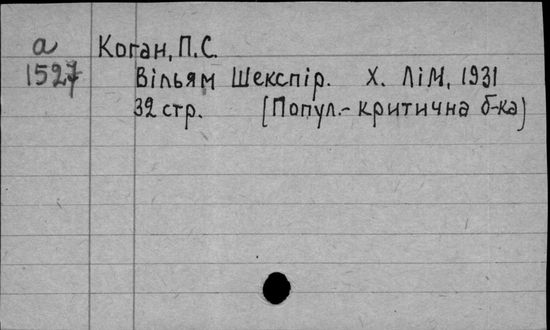 а Коган, П.С.
1527 Вільям Шекспір. Х. ЛіМ, 1931
32 стр. [Попул.- критична б-ка)